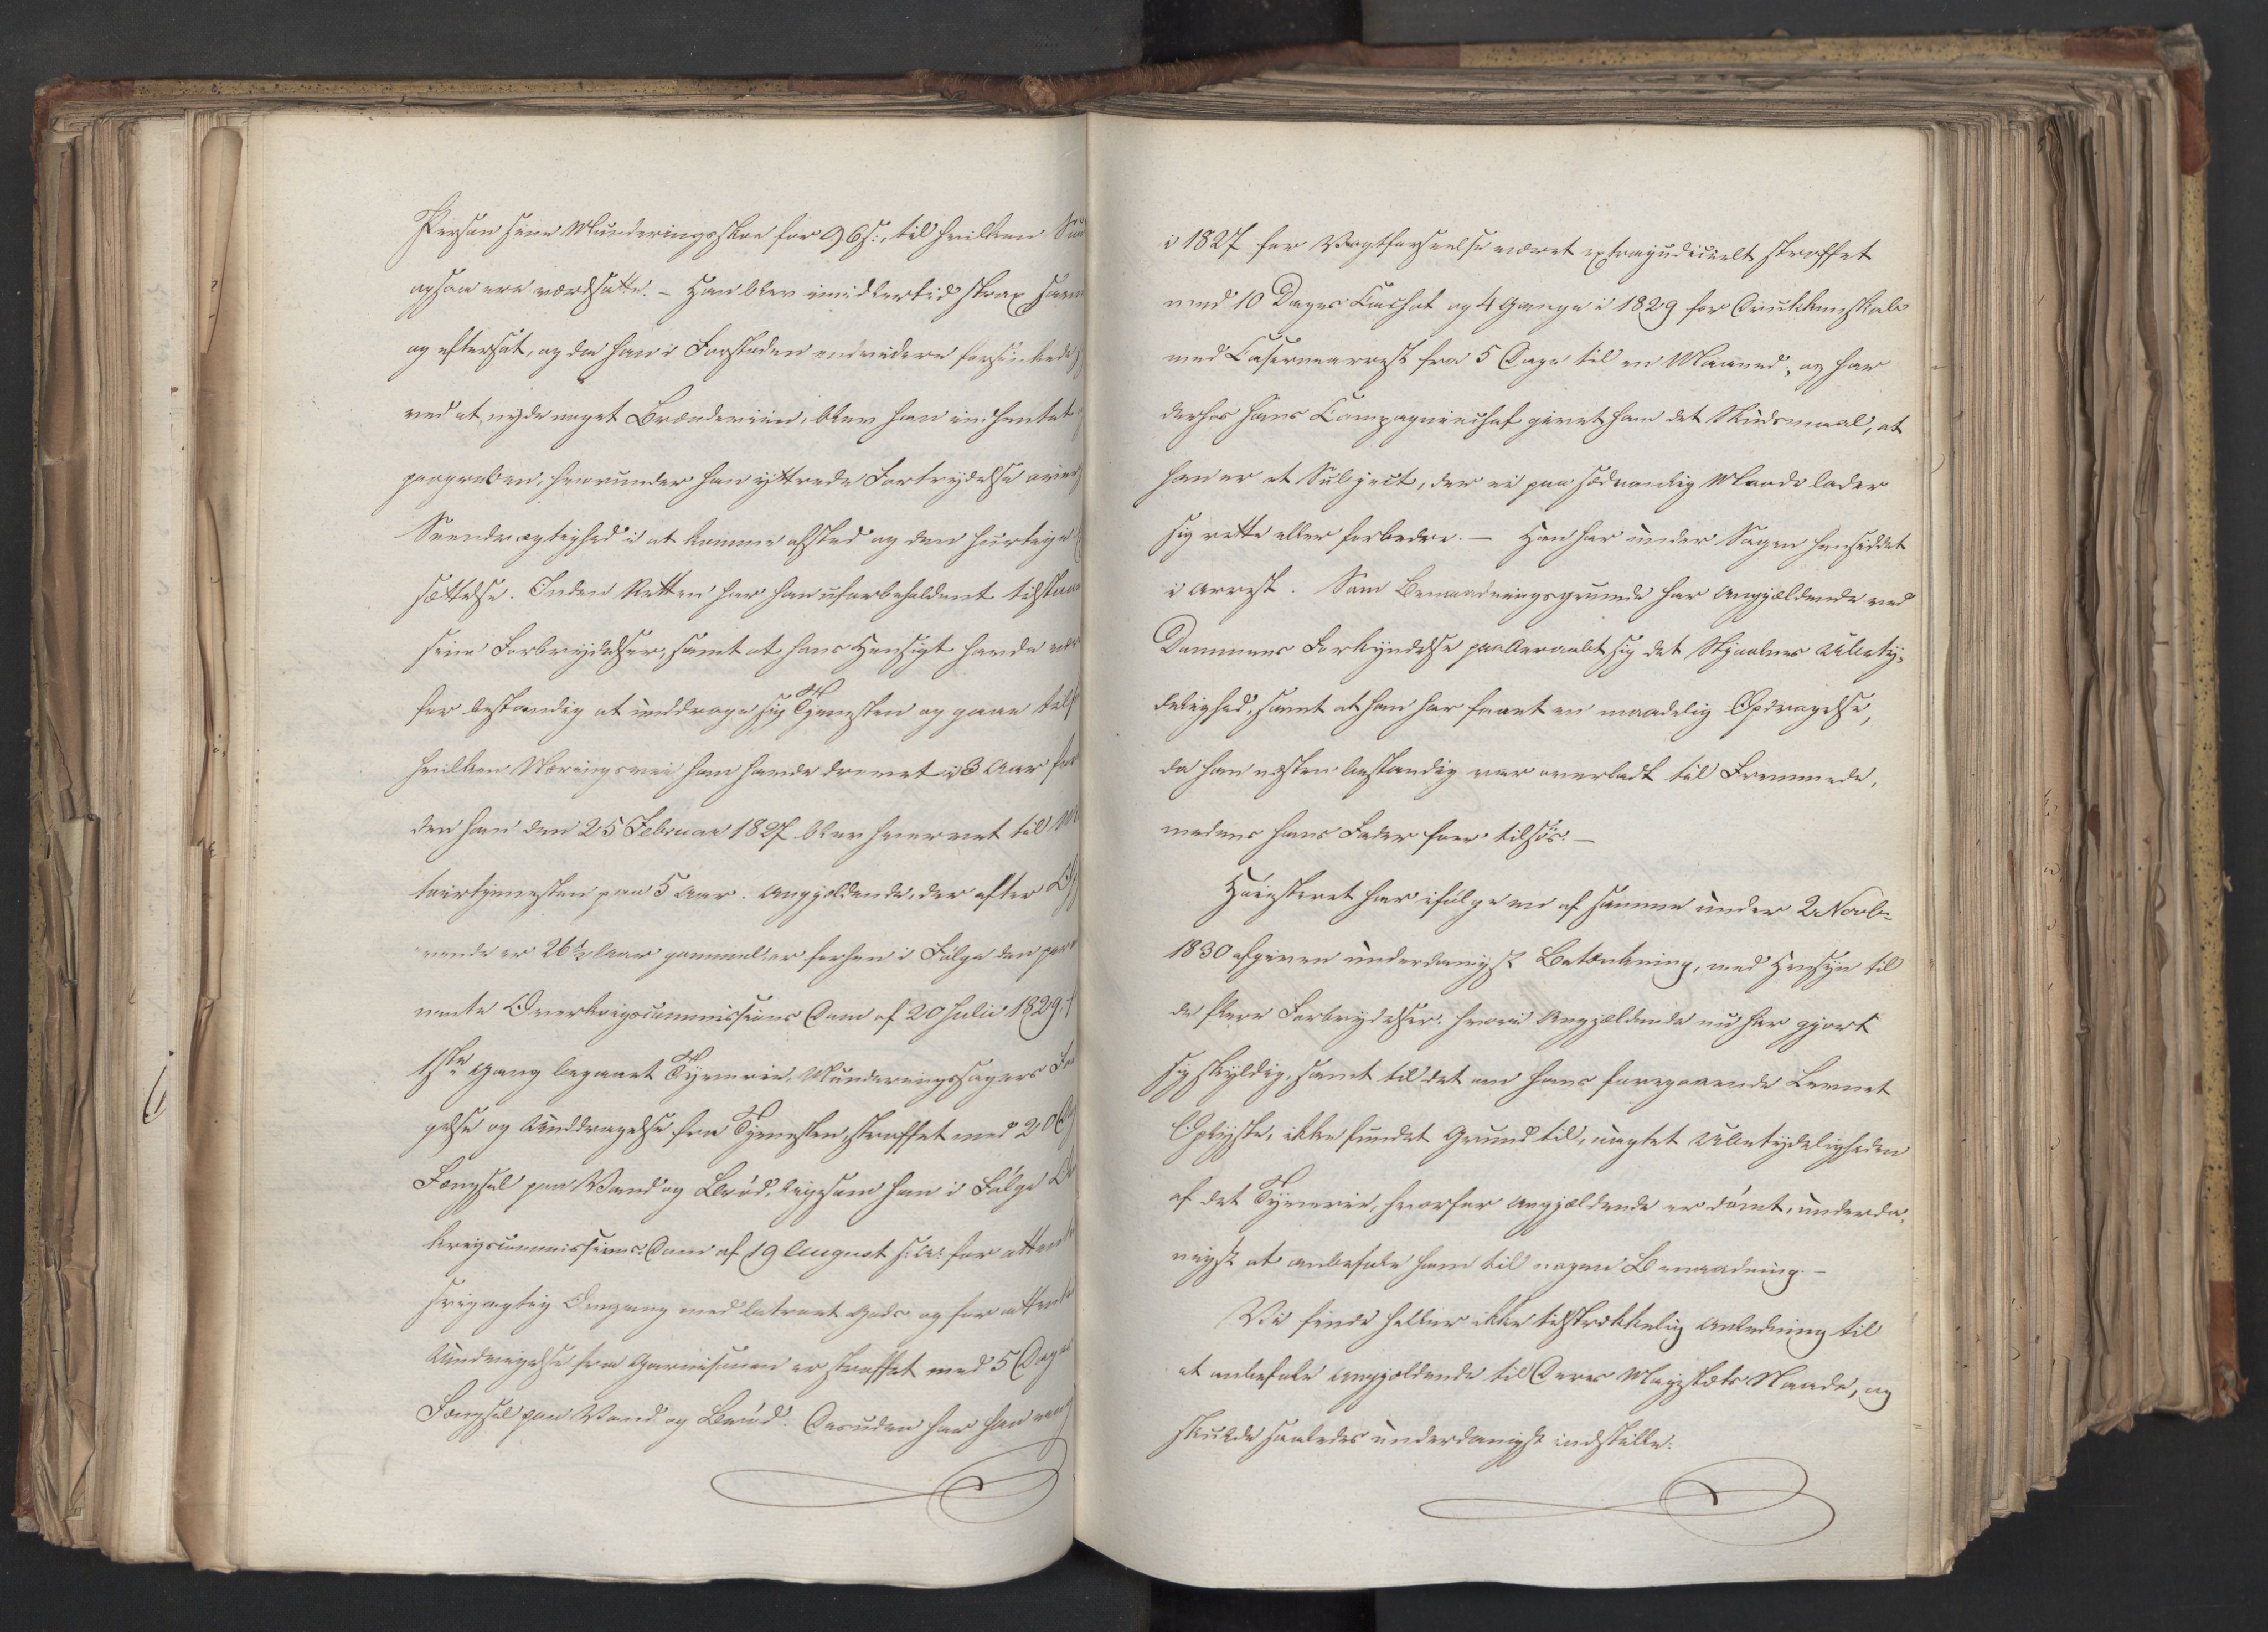 Person sine Munderingsskoe for 96 s:, til hvilken
ogsaa ere værdsatte. – Han blev imidlertid strax
og eftersat, og da han i Forstaden endvidere forsinkede
ved at nyde noget Brændeviin, blev han indhentet
paagreben, hvorunder han yttrede Fortrydelse over
Seendrægtighed i at komme afsted og den hurtige
sættelse. Inden Retten har han uforbeholdent
sine Forbrydelser, samt at hans Hensigt havde
for bestandig at unddrage sig Tjenesten og gaae
hvilken Næringsvei han havde drevet i 3 Aar
den han den 25 Februar 1827 blev hvervet til
tairtjenesten paa 5 Aar. Angjældende, der efter
vende er 26½ Aar gammel, er forhen i Følge den
mente Overkrigscommissions Dom af 20 Julii 1829,
1ste Gang begaaet Tyverie, Munderingssagers
gelse og Unddragelse fra Tjenesten, straffet med
Fængsel paa Vand og Brød, ligesom han i Følge
krigscommissions Dom af 19 August s: A: for
svigagtig Omgang med betroet Gods og for
Undvigelse fra Garnisonen er straffet med 5 Dages
Fængsel paa Vand og Brød. Desuden har han
i 1827 for Vagtforseelse været extrajudicielt straffet
med 10 Dages Cachot og 4 Gange i 1829 for Drukkenskab
med Casernearrest fra 5 Dage til en Maaned; og har
derhos hans Compagniechef givet ham det Skudsmaal, at
han er et Subject, der ei paa sædvanlig Maade lader
sig rette eller forbedre. – Han har under Sagen hensiddet
i Arrest. Som Benaadningsgrunde har Angjældende ved
Dommens Forkyndelse paaberaabt sig det Stjaalnes Ubety-
delighed, samt at han har faaet en maadelig Opdragelse,
da han næsten bestandig var overladt til Fremmede,
medens hans Fader foer tilsøes. –
Høiesteret har ifølge en af samme under 2 Novbr
1830 afgiven underdanigst Betænkning, med Hensyn til
de flere Forbrydelser, hvori Angjældende nu har gjort
sig skyldig, samt til det om hans foregaaende Levnet
Oplyste, ikke fundet Grund til, uagtet Ubetydeligheden
af det Tyverie, hvorfor Angjældende er dømt, underda-
nigst at anbefale ham til nogen Benaadning. –
Vi finde heller ikke tilstrækkelig Anledning til
at anbefale Angjældende til Deres Majestæts Naade, og
skulde saaledes underdanigst indstille: